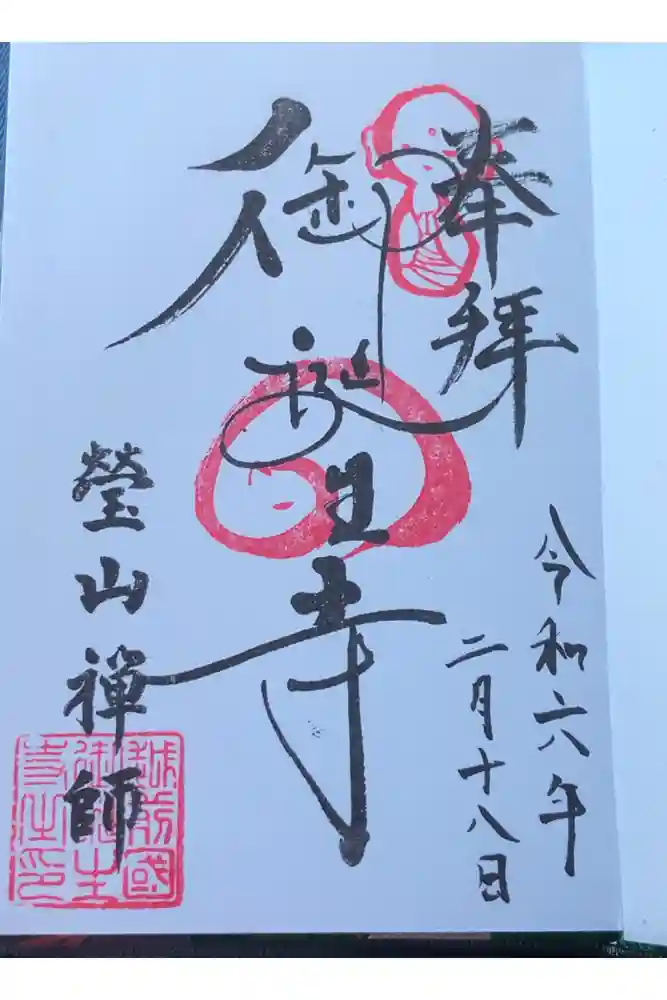 奉拝
令和六年
二月十八日
御誕生寺
瑩山禅師
越前國
御誕生
寺住印